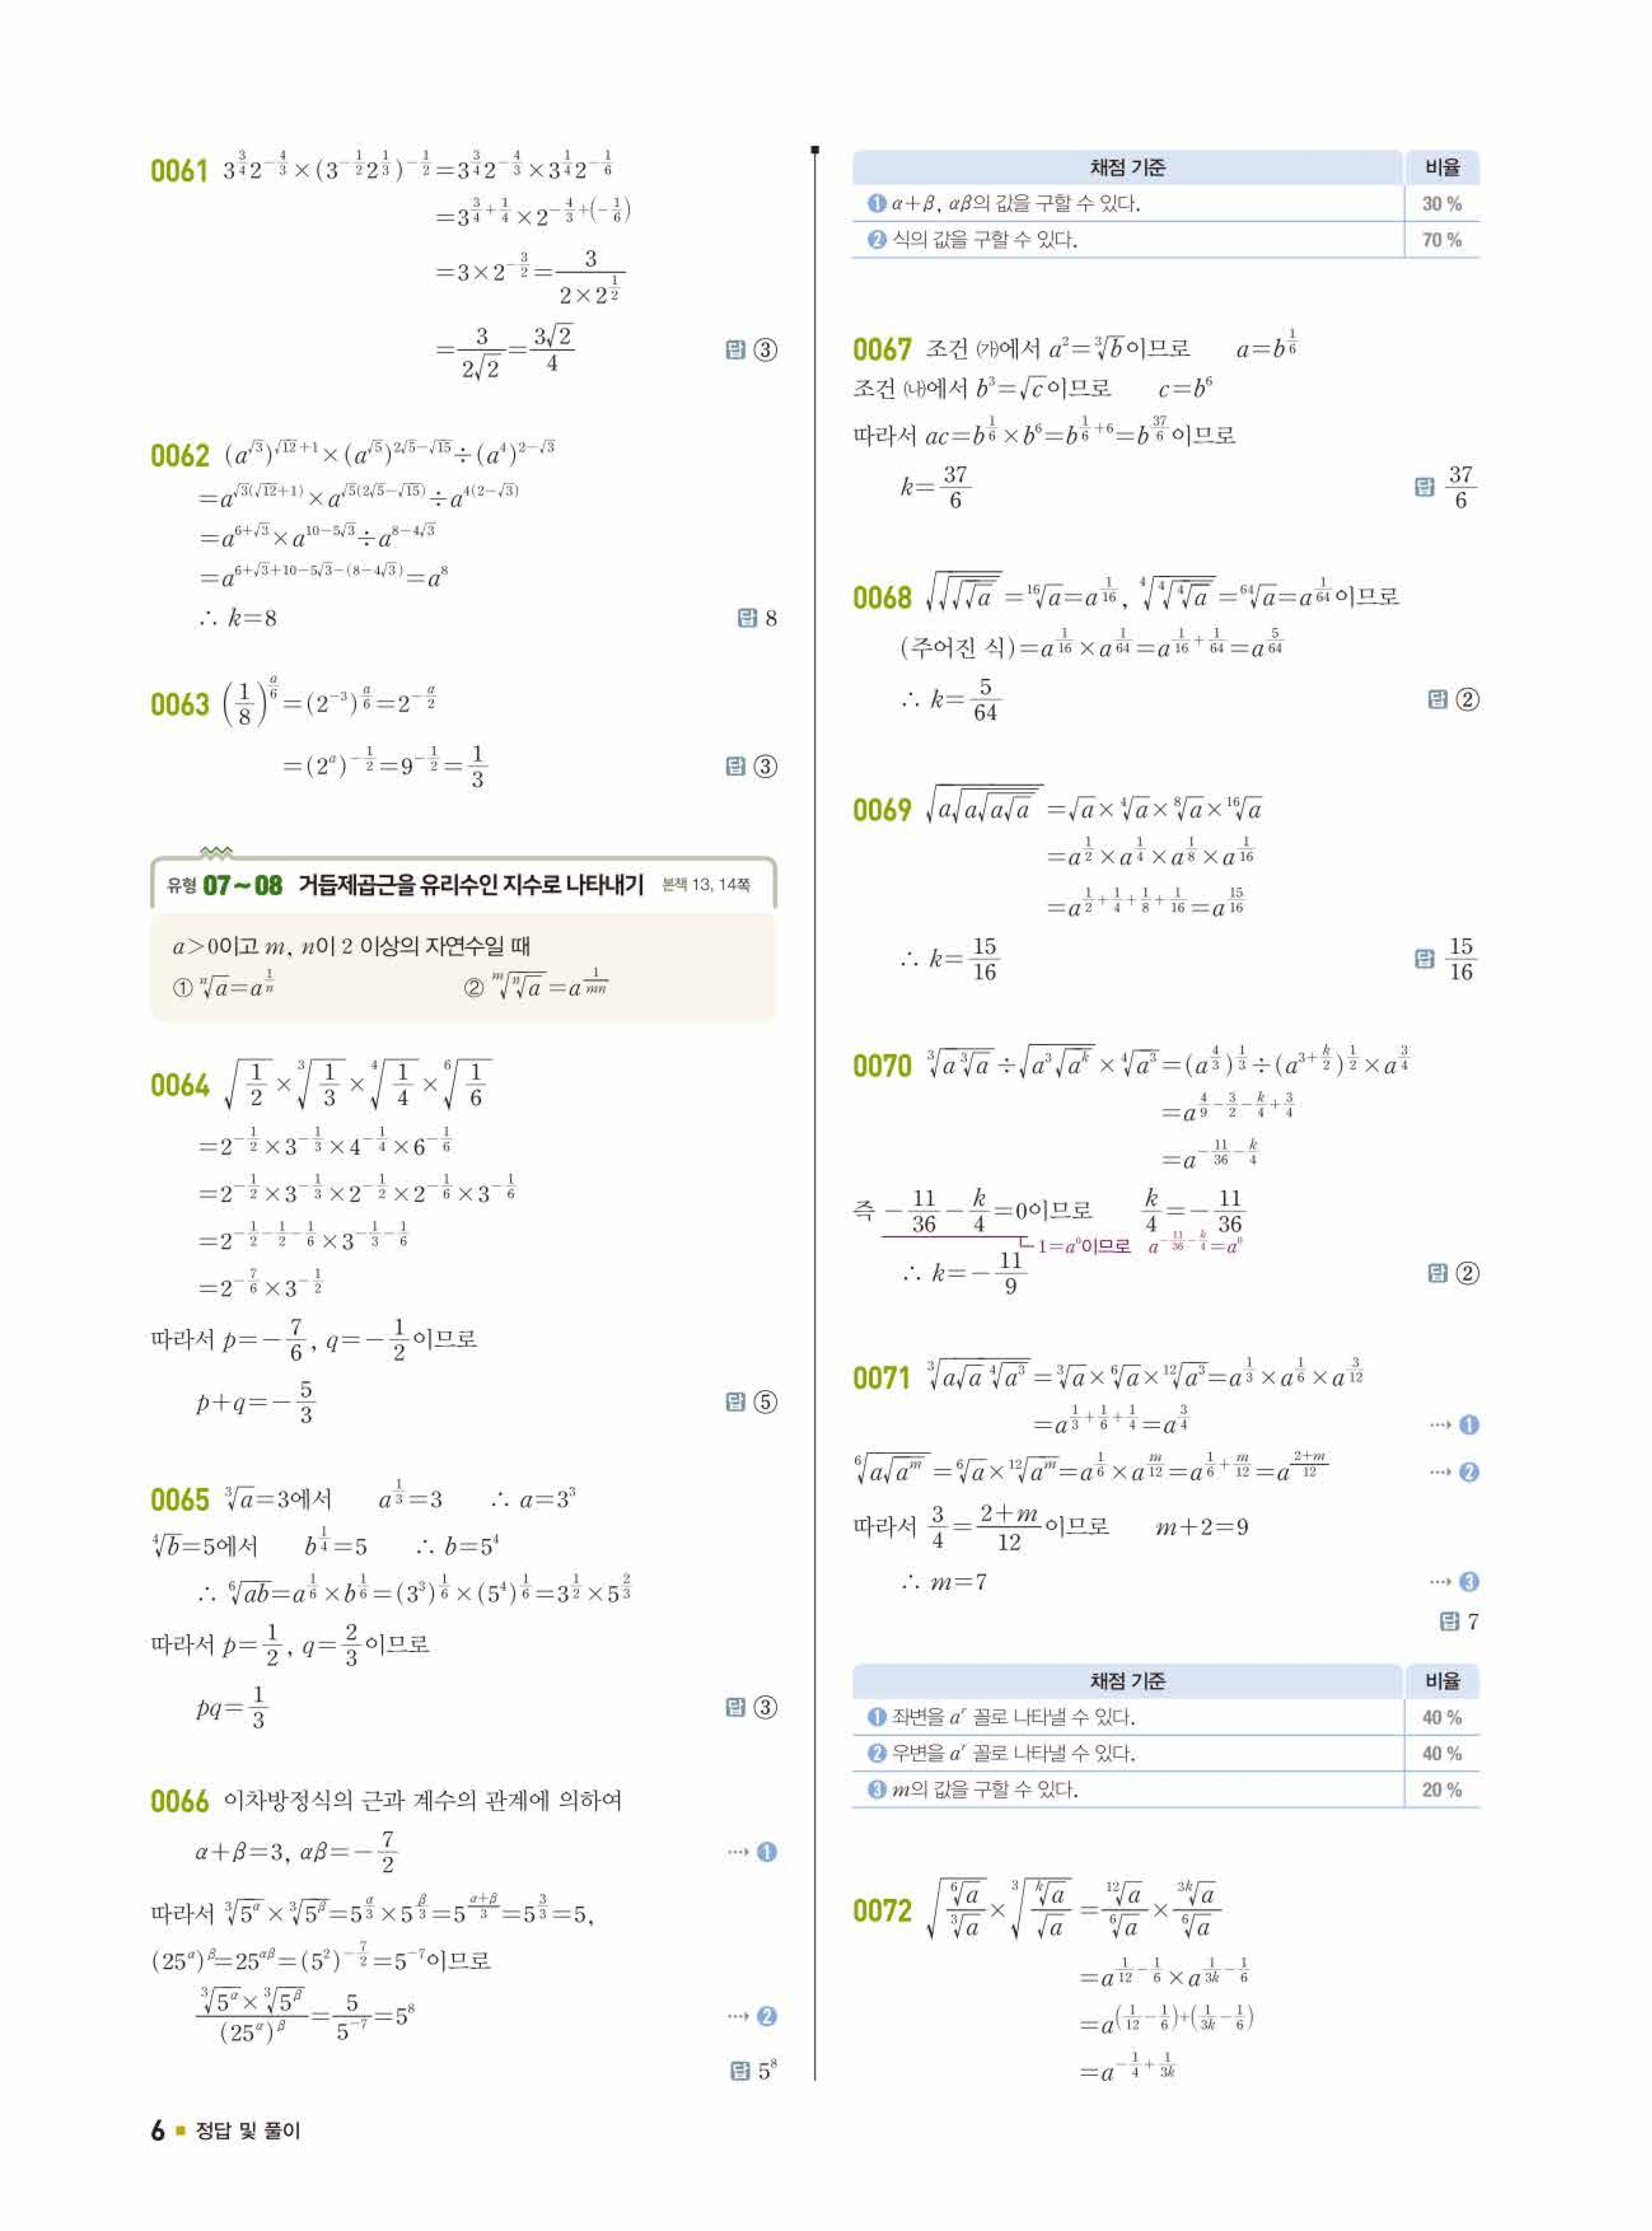 0061 $3^{\frac{3}{4}}2^{-\frac{4}{3}}\times(3^{-\frac{1}{2}}2^{\frac{1}{3}})^{-\frac{1}{2}}=3^{\frac{3}{4}}2^{-\frac{4}{3}}\times3^{\frac{1}{4}}2^{-\frac{1}{6}}$
$=3^{\frac{3}{4}+\frac{1}{4}}\times2^{-\frac{4}{3}+(-\frac{1}{6})}$
$=3\times2^{-\frac{3}{2}}=\frac{3}{2\times2^{\frac{1}{2}}}$
$=\frac{3}{2\sqrt{2}}=\frac{3\sqrt{2}}{4}$ 답 ③
0062 $(a^{\sqrt{3}})^{\sqrt{12}+1}\times(a^{\sqrt{5}})^{2\sqrt{5}-\sqrt{15}}\div(a^4)^{2-\sqrt{3}}$
$=a^{\sqrt{3}(\sqrt{12}+1)}\times a^{\sqrt{5}(2\sqrt{5}-\sqrt{15})}\div a^{4(2-\sqrt{3})}$
$=a^{6+\sqrt{3}}\times a^{10-5\sqrt{3}}\div a^{8-4\sqrt{3}}$
$=a^{6+\sqrt{3}+10-5\sqrt{3}-(8-4\sqrt{3})}=a^8$
∴ $k=8$ 답 8
0063 $\left(\frac{1}{8}\right)^{\frac{a}{6}}=(2^{-3})^{\frac{a}{6}}=2^{-\frac{a}{2}}$
$=(2^a)^{-\frac{1}{2}}=9^{-\frac{1}{2}}=\frac{1}{3}$ 답 ③
유형 07~08 거듭제곱근을 유리수인 지수로 나타내기 본책 13, 14쪽
$a>0$이고 $m$, $n$이 2 이상의 자연수일 때
① $\sqrt[n]{a}=a^{\frac{1}{n}}$ ② $\sqrt[m]{\sqrt[n]{a}}=a^{\frac{1}{mn}}$
0064 $\sqrt{\frac{1}{2}}\times\sqrt[3]{\frac{1}{3}}\times\sqrt[4]{\frac{1}{4}}\times\sqrt[6]{\frac{1}{6}}$
$=2^{-\frac{1}{2}}\times3^{-\frac{1}{3}}\times4^{-\frac{1}{4}}\times6^{-\frac{1}{6}}$
$=2^{-\frac{1}{2}}\times3^{-\frac{1}{3}}\times2^{-\frac{1}{2}}\times2^{-\frac{1}{6}}\times3^{-\frac{1}{6}}$
$=2^{-\frac{1}{2}-\frac{1}{2}-\frac{1}{6}}\times3^{-\frac{1}{3}-\frac{1}{6}}$
$=2^{-\frac{7}{6}}\times3^{-\frac{1}{2}}$
따라서 $p=-\frac{7}{6}$, $q=-\frac{1}{2}$이므로
$p+q=-\frac{5}{3}$ 답 ⑤
0065 $\sqrt[3]{a}=3$에서 $a^{\frac{1}{3}}=3$ ∴ $a=3^3$
$\sqrt[4]{b}=5$에서 $b^{\frac{1}{4}}=5$ ∴ $b=5^4$
∴ $\sqrt[6]{ab}=a^{\frac{1}{6}}\times b^{\frac{1}{6}}=(3^3)^{\frac{1}{6}}\times(5^4)^{\frac{1}{6}}=3^{\frac{1}{2}}\times5^{\frac{2}{3}}$
따라서 $p=\frac{1}{2}$, $q=\frac{2}{3}$이므로
$pq=\frac{1}{3}$ 답 ③
0066 이차방정식의 근과 계수의 관계에 의하여
$\alpha+\beta=3$, $\alpha\beta=-\frac{7}{2}$ ⋯→ ❶
따라서 $\sqrt[3]{5^\alpha}\times\sqrt[3]{5^\beta}=5^{\frac{\alpha}{3}}\times5^{\frac{\beta}{3}}=5^{\frac{\alpha+\beta}{3}}=5^{\frac{3}{3}}=5$,
$(25^\alpha)^\beta=25^{\alpha\beta}=(5^2)^{-\frac{7}{2}}=5^{-7}$이므로
$\frac{\sqrt[3]{5^\alpha}\times\sqrt[3]{5^\beta}}{(25^\alpha)^\beta}=\frac{5}{5^{-7}}=5^8$ ⋯→ ❷
답 $5^8$
6 ■ 정답 및 풀이
채점 기준 비율
❶ $\alpha+\beta$, $\alpha\beta$의 값을 구할 수 있다. 30 %
❷ 식의 값을 구할 수 있다. 70 %
0067 조건 ㈎에서 $a^2=\sqrt[3]{b}$이므로 $a=b^{\frac{1}{6}}$
조건 ㈏에서 $b^3=\sqrt{c}$이므로 $c=b^6$
따라서 $ac=b^{\frac{1}{6}}\times b^6=b^{\frac{1}{6}+6}=b^{\frac{37}{6}}$이므로
$k=\frac{37}{6}$ 답 $\frac{37}{6}$
0068 $\sqrt{\sqrt{\sqrt{\sqrt{a}}}}=\sqrt[16]{a}=a^{\frac{1}{16}}$, $\sqrt[4]{\sqrt[4]{\sqrt[4]{a}}}=\sqrt[64]{a}=a^{\frac{1}{64}}$이므로
(주어진 식)$=a^{\frac{1}{16}}\times a^{\frac{1}{64}}=a^{\frac{1}{16}+\frac{1}{64}}=a^{\frac{5}{64}}$
∴ $k=\frac{5}{64}$ 답 ②
0069 $\sqrt{a\sqrt{a\sqrt{a\sqrt{a}}}}=\sqrt{a}\times\sqrt[4]{a}\times\sqrt[8]{a}\times\sqrt[16]{a}$
$=a^{\frac{1}{2}}\times a^{\frac{1}{4}}\times a^{\frac{1}{8}}\times a^{\frac{1}{16}}$
$=a^{\frac{1}{2}+\frac{1}{4}+\frac{1}{8}+\frac{1}{16}}=a^{\frac{15}{16}}$
∴ $k=\frac{15}{16}$ 답 $\frac{15}{16}$
0070 $\sqrt[3]{a\sqrt[3]{a}}\div\sqrt{a^3\sqrt{a^k}}\times\sqrt[4]{a^3}=(a^{\frac{4}{3}})^{\frac{1}{3}}\div(a^{3+\frac{k}{2}})^{\frac{1}{2}}\times a^{\frac{3}{4}}$
$=a^{\frac{4}{9}-\frac{3}{2}-\frac{k}{4}+\frac{3}{4}}$
$=a^{-\frac{11}{36}-\frac{k}{4}}$
즉 $-\frac{11}{36}-\frac{k}{4}=0$이므로 $\frac{k}{4}=-\frac{11}{36}$
$1=a^0$이므로 $a^{-\frac{11}{36}-\frac{k}{4}}=a^0$
∴ $k=-\frac{11}{9}$ 답 ②
0071 $\sqrt[3]{a\sqrt{a}\sqrt[4]{a^3}}=\sqrt[3]{a}\times\sqrt[6]{a}\times\sqrt[12]{a^3}=a^{\frac{1}{3}}\times a^{\frac{1}{6}}\times a^{\frac{3}{12}}$
$=a^{\frac{1}{3}+\frac{1}{6}+\frac{1}{4}}=a^{\frac{3}{4}}$ ⋯→ ❶
$\sqrt[6]{a\sqrt{a^m}}=\sqrt[6]{a}\times\sqrt[12]{a^m}=a^{\frac{1}{6}}\times a^{\frac{m}{12}}=a^{\frac{1}{6}+\frac{m}{12}}=a^{\frac{2+m}{12}}$ ⋯→ ❷
따라서 $\frac{3}{4}=\frac{2+m}{12}$이므로 $m+2=9$
∴ $m=7$ ⋯→ ❸
답 7
채점 기준 비율
❶ 좌변을 $a^r$ 꼴로 나타낼 수 있다. 40 %
❷ 우변을 $a^r$ 꼴로 나타낼 수 있다. 40 %
❸ $m$의 값을 구할 수 있다. 20 %
0072 $\sqrt{\frac{\sqrt[6]{a}}{\sqrt[3]{a}}}\times\sqrt[3]{\frac{\sqrt[k]{a}}{\sqrt{a}}}=\frac{\sqrt[12]{a}}{\sqrt[6]{a}}\times\frac{\sqrt[3k]{a}}{\sqrt[6]{a}}$
$=a^{\frac{1}{12}-\frac{1}{6}}\times a^{\frac{1}{3k}-\frac{1}{6}}$
$=a^{(\frac{1}{12}-\frac{1}{6})+(\frac{1}{3k}-\frac{1}{6})}$
$=a^{-\frac{1}{4}+\frac{1}{3k}}$